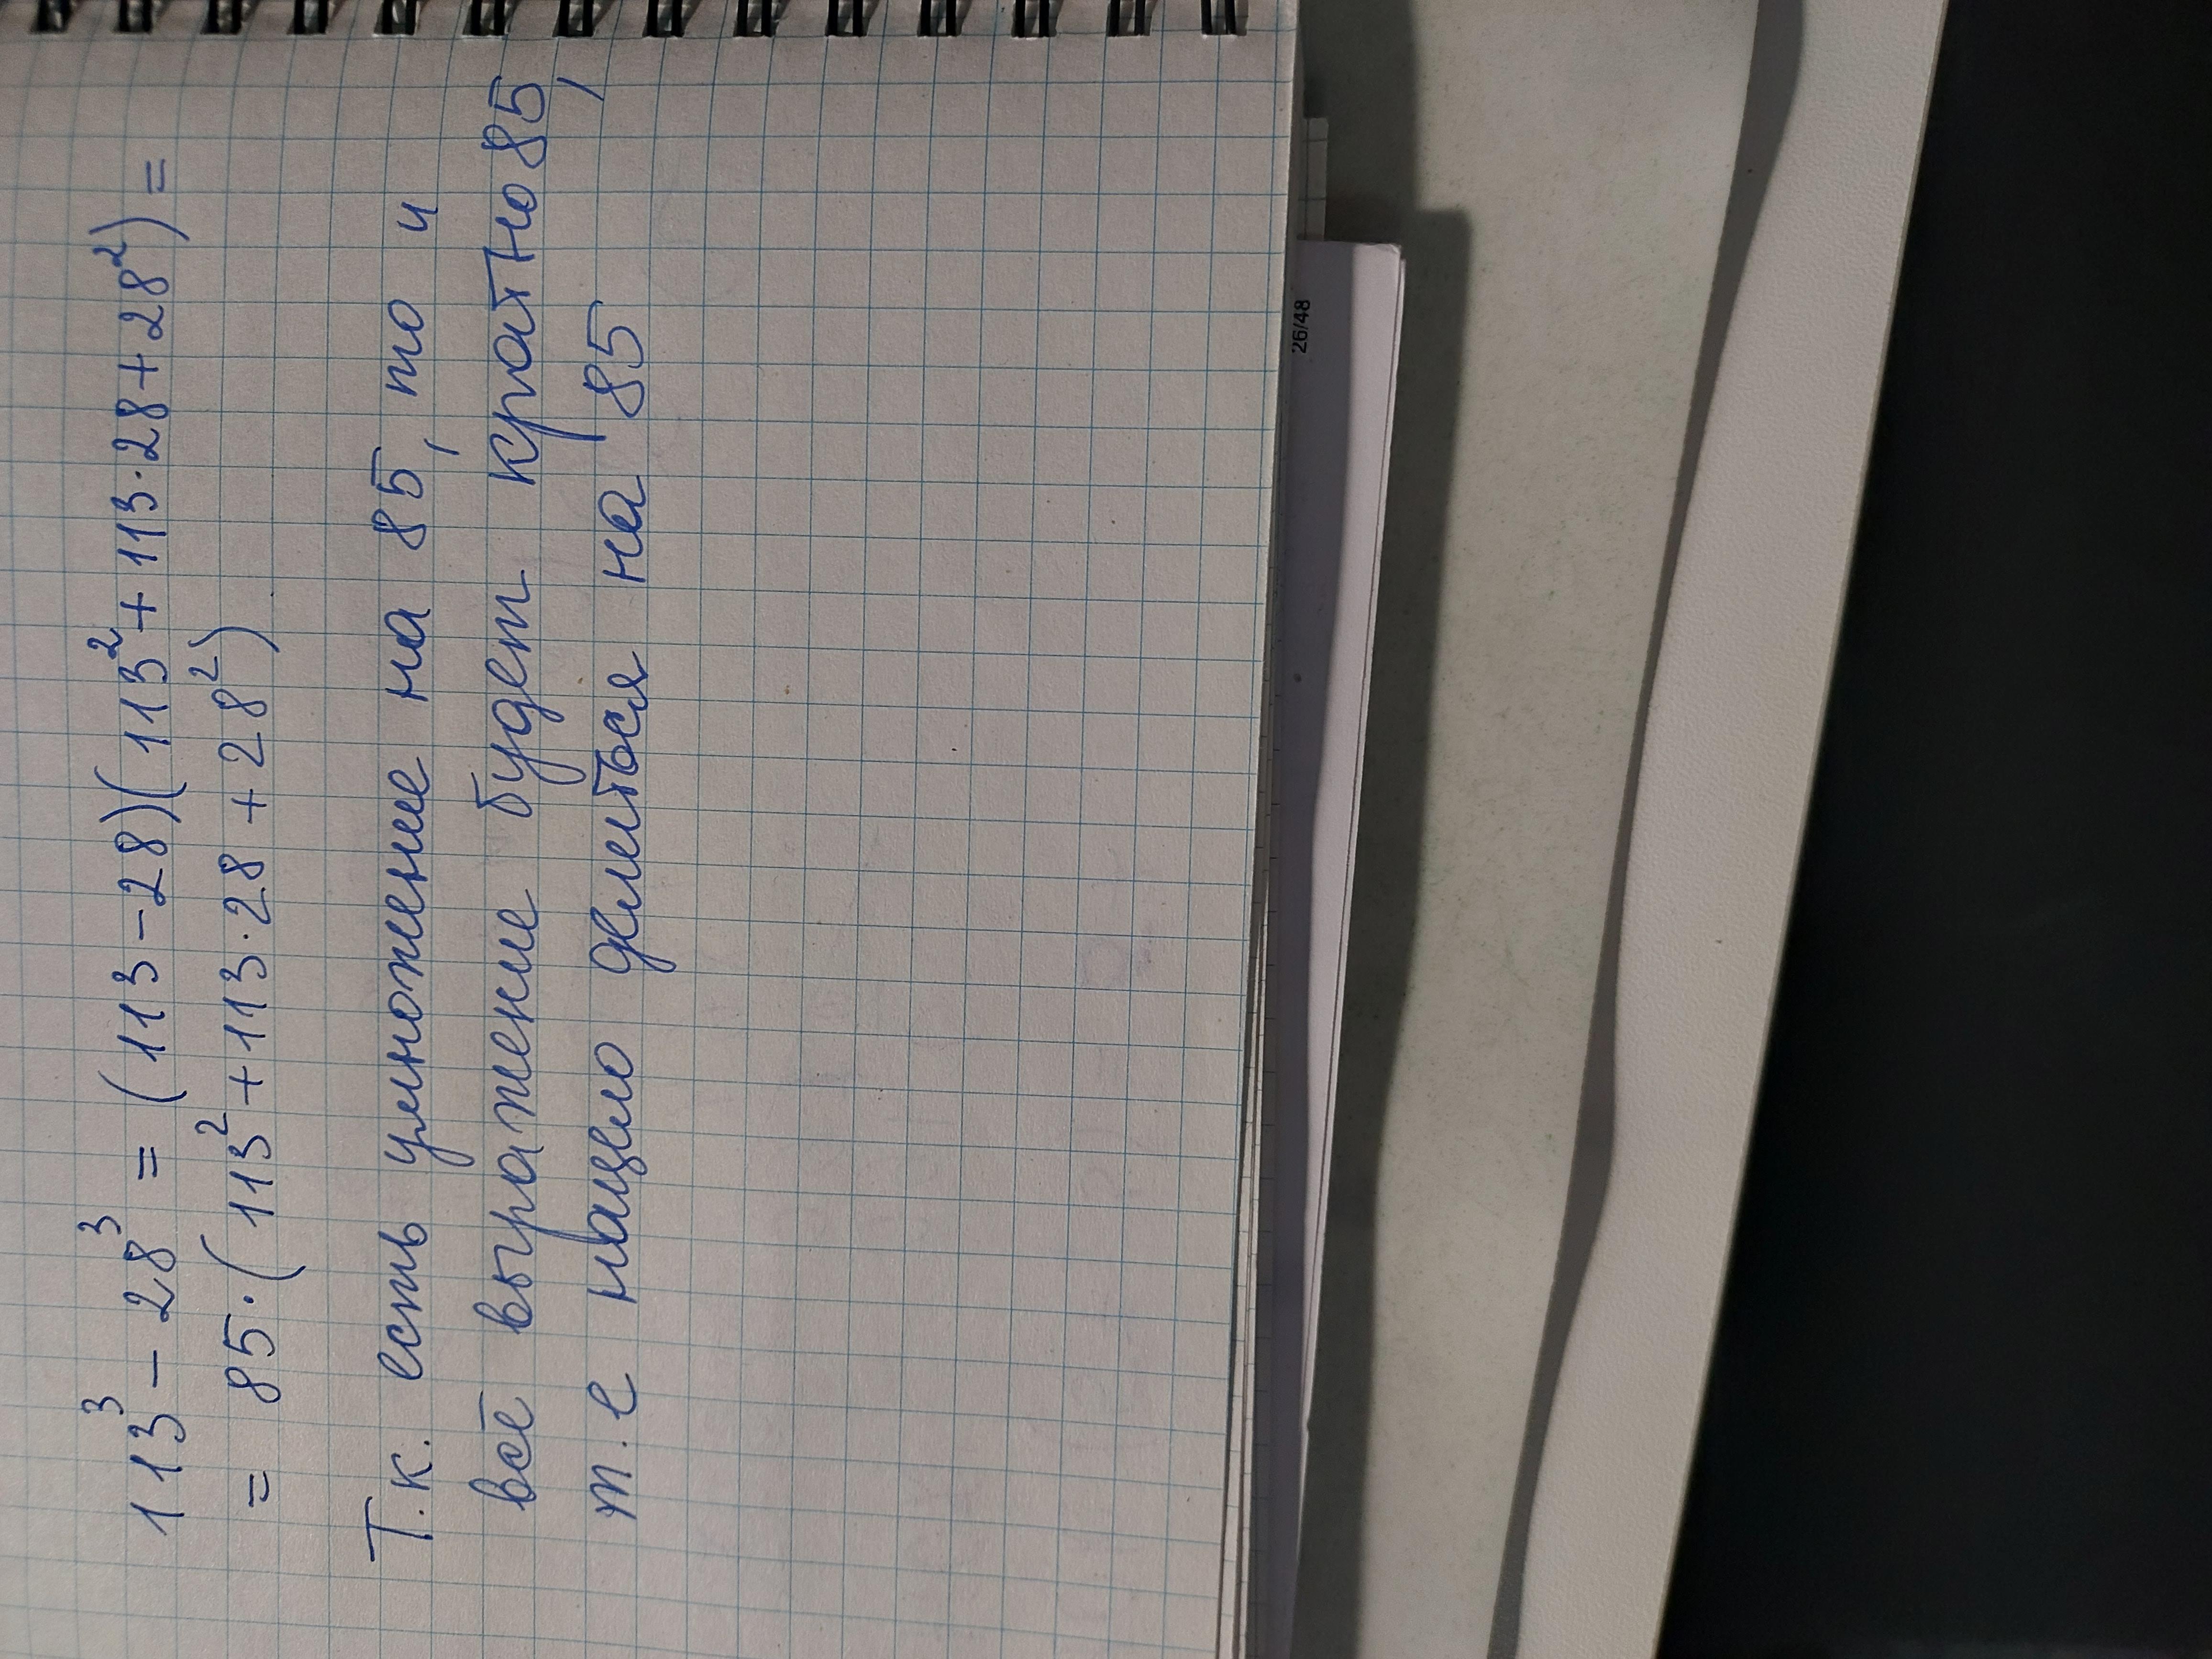 113³ - 28³ = (113-28)(113² + 113·28 + 28²) =
= 85·(113² + 113·28 + 28²)
Т.к. есть умножение на 85, то и
всё выражение будет кратно 85,
т.е нацело делиться на 85
26/48